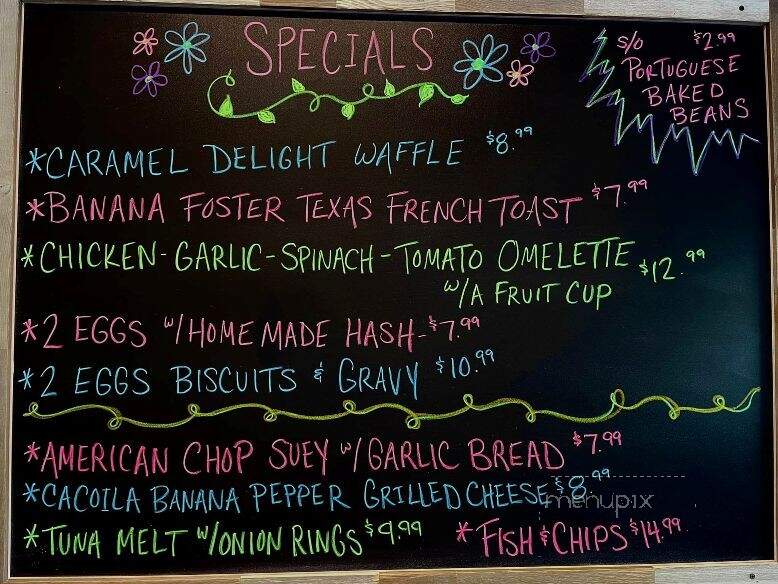 SPECIALS
S/O $2.99
PORTUGUESE
BAKED
BEANS
*CARAMEL DELIGHT WAFFLE $8.99
*BANANA FOSTER TEXAS FRENCH TOAST $7.99
*CHICKEN-GARLIC-SPINACH-TOMATO OMELETTE $12.99
W/A FRUIT CUP
*2 EGGS W/HOME MADE HASH-$7.99
*2 EGGS BISCUITS & GRAVY $10.99
*AMERICAN CHOP SUEY W/GARLIC BREAD $7.99
*CACOILA BANANA PEPPER GRILLED CHEESE $8.99
menupix
*TUNA MELT W/ONION RINGS $9.99 *FISH & CHIPS $14.99